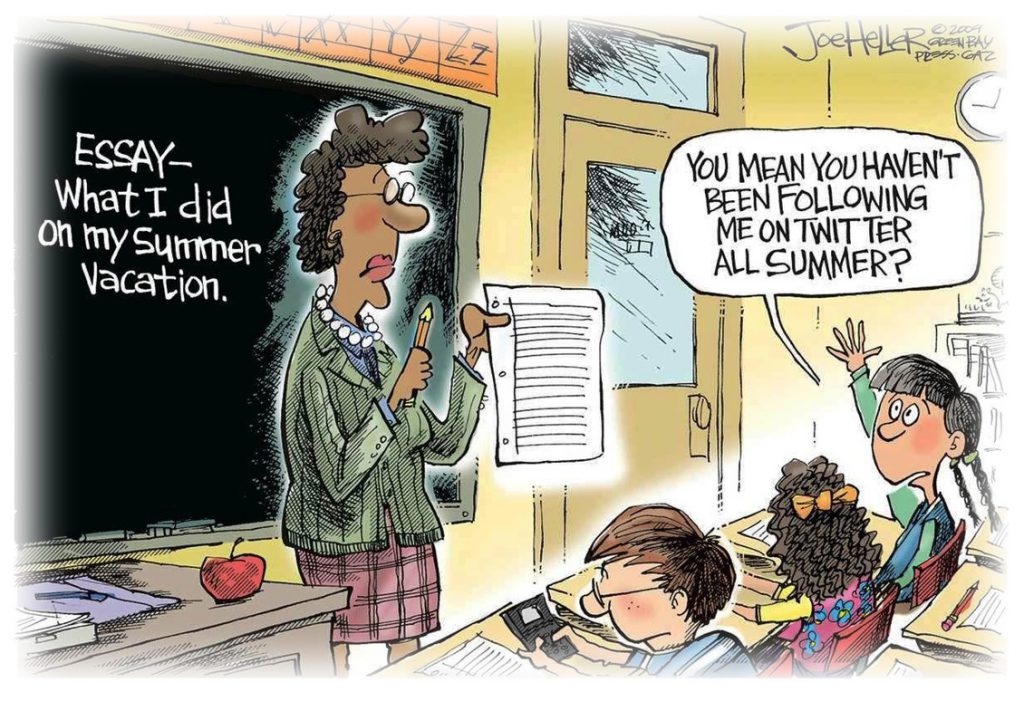 Xx Yy Zz
JOE HELLER
© 2009
GREEN BAY
PRESS-GAZ
ESSAY—
What I did
on my Summer
Vacation.
YOU MEAN YOU HAVEN'T
BEEN FOLLOWING
ME ON TWITTER
ALL SUMMER?